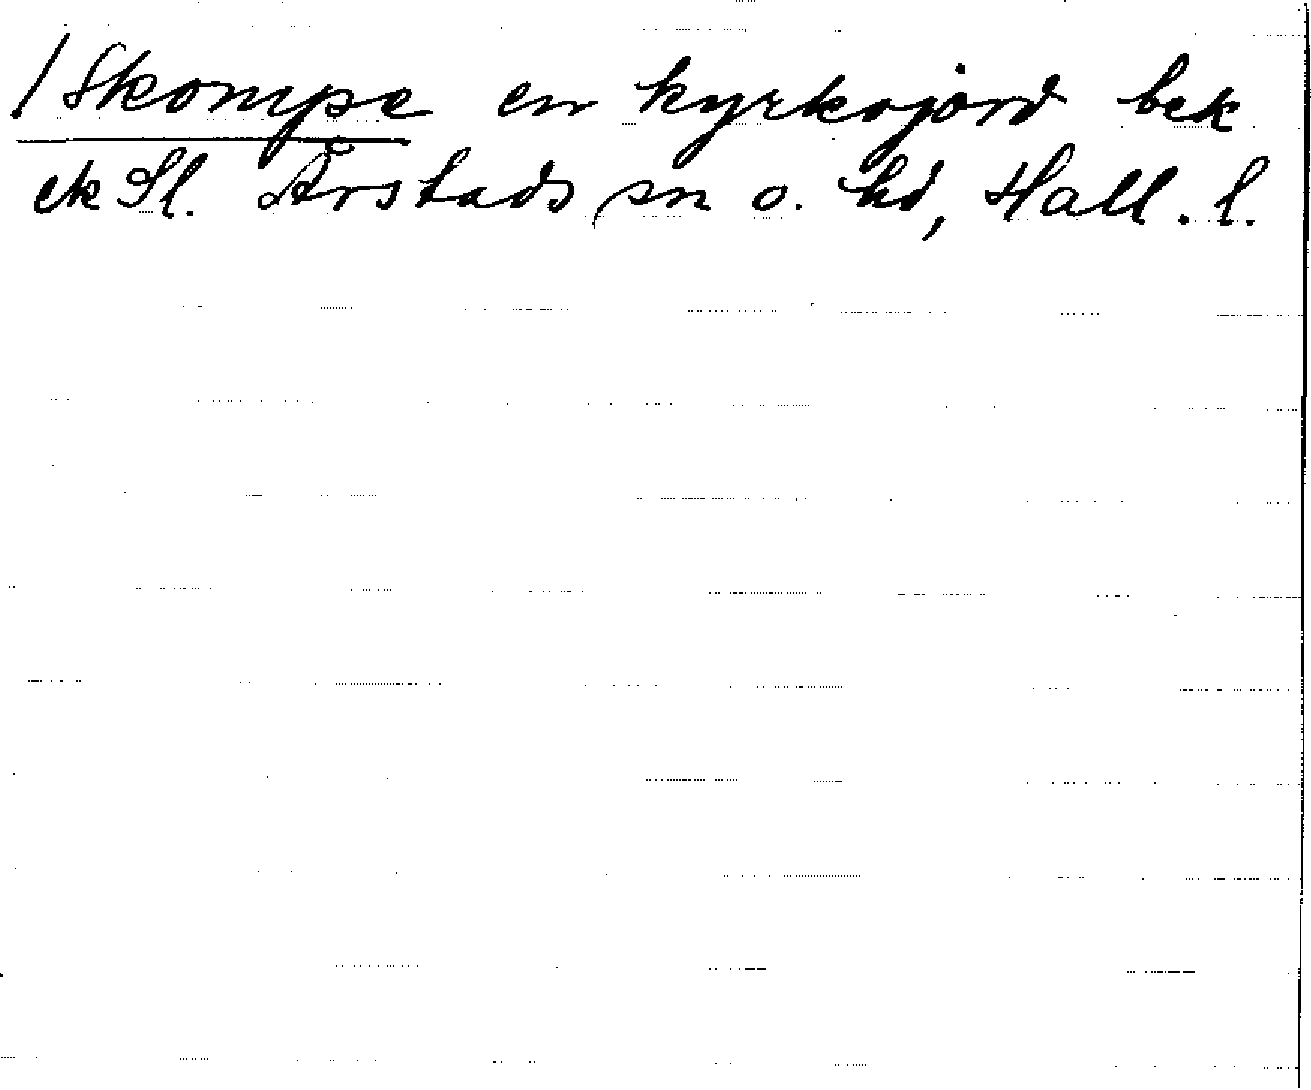 /Skompe en kyrkojord bek
ek Sl. Årstads sn o. hd, Hall. l.